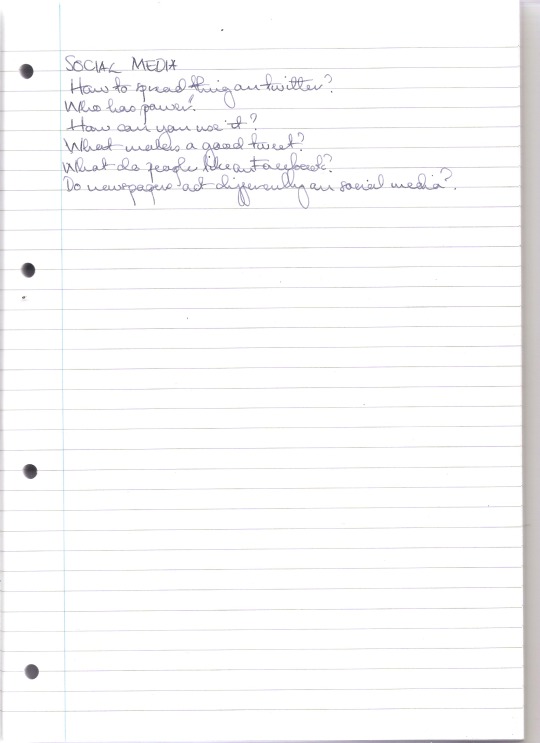 SOCIAL MEDIA
How to spread thing on twitter?
Who has power?
How can you use it?
What makes a good tweet?
What do people like on Facebook?
Do newspapers act differently on social media?